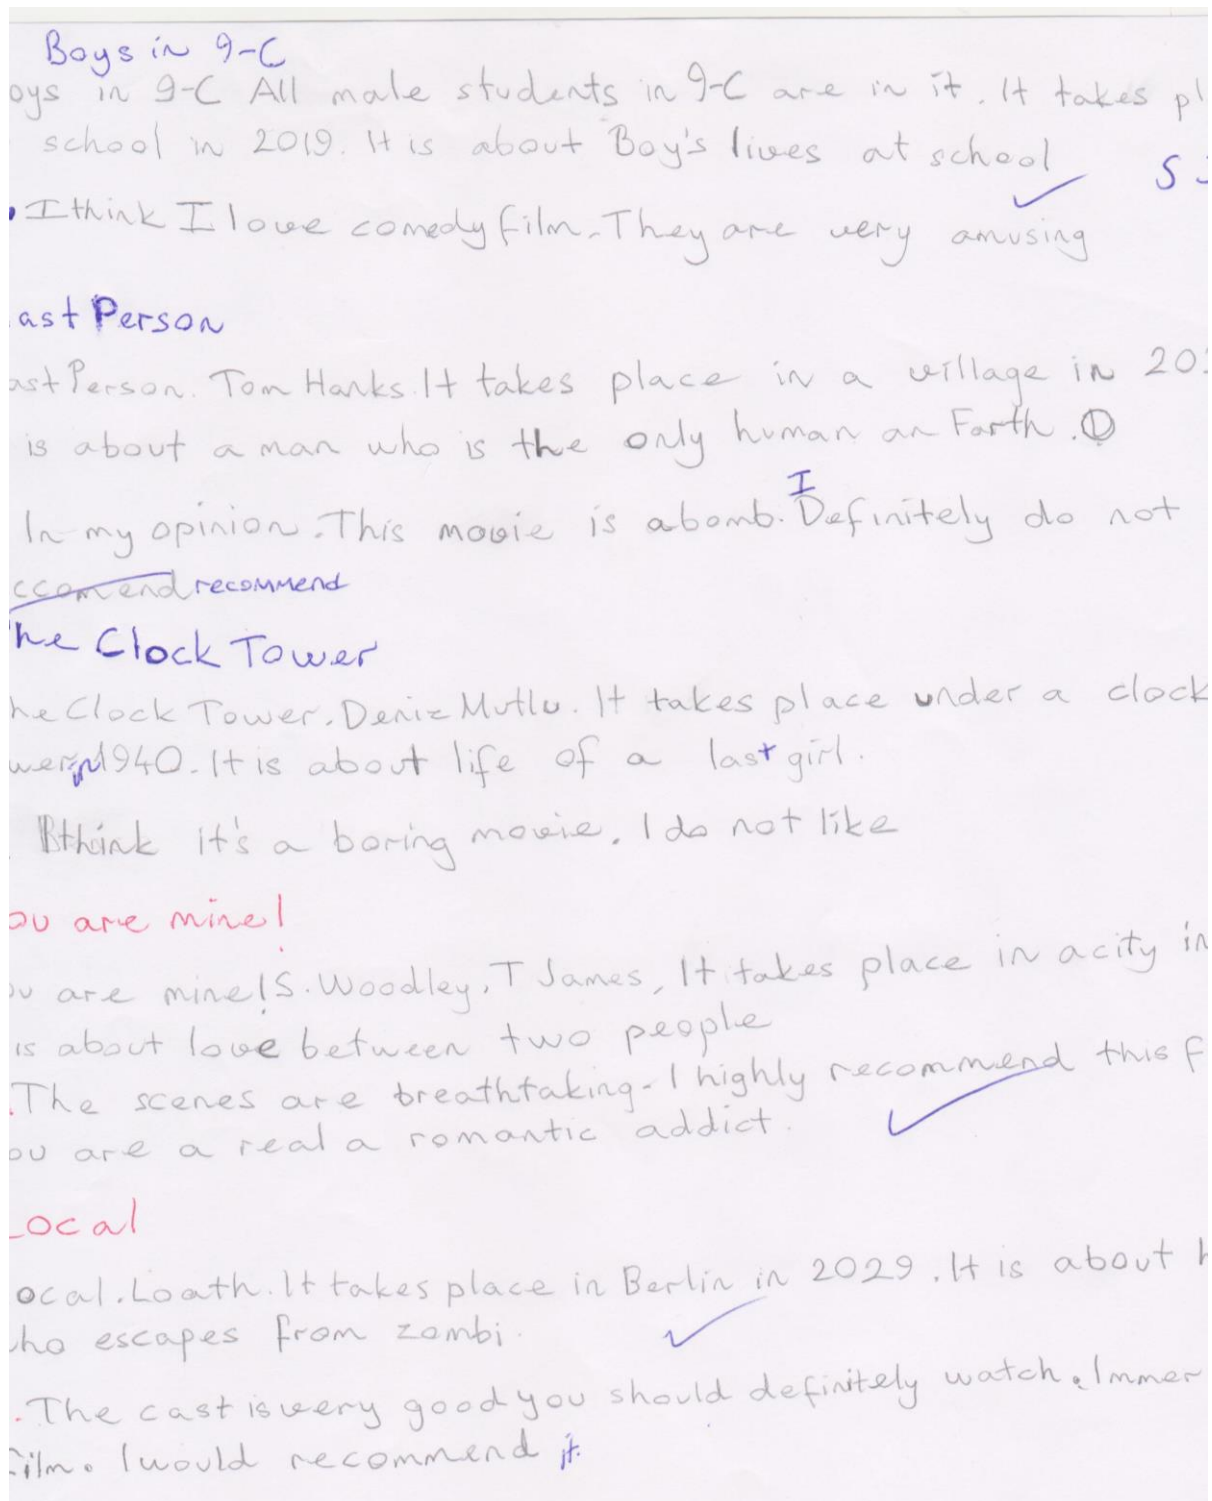 Boys in 9-C
oys in 9-C All male students in 9-C are in it. It takes pl
school in 2019. It is about Boy's lives at school
S
I think I love comedy film. They are very amusing
ast Person
ast Person. Tom Hanks. It takes place in a village in 20
is about a man who is the only human an Farth.
I
In my opinion. This movie is abomb. Definitely do not
ccomend recommend
he Clock Tower
he Clock Tower. Deniz Mutlu. It takes place under a clock
wer in 1940. It is about life of a last girl.
think it's a boring movie. I do not like
ou are mine!
ou are mine! S. Woodley, T James, It takes place in a city in
is about love between two people
The scenes are breathtaking. I highly recommend this f
ou are a real a romantic addict.
Local
ocal. Loath. It takes place in Berlin in 2029. It is about h
ho escapes from zombi.
The cast is very good you should definitely watch. Immer
film. I would recommend it.